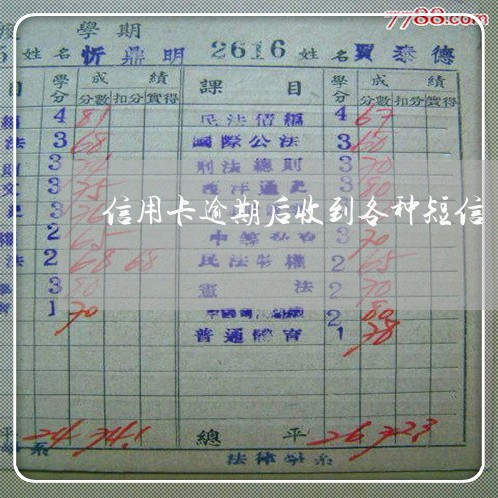 7788.com
學期
姓名 忻鼎明 2616 姓名 賈泰德
目 學分 成績 課目 學分 成績
分數 扣分 實得 分數 扣分 實得
4 81 民法債編 4 67
法 3 68 國際公法 3 60
3 刑法總則 3 70
3 75 西洋通史 3 80
信用卡逾期后收到各种短信
2 65 3 70
法 2 68 68 民法物權 2 65
3 80 憲法 2 70
1 70 2 80
普通體育 1 78
平 24 74.1 總平 26 72.3
系 法律學系